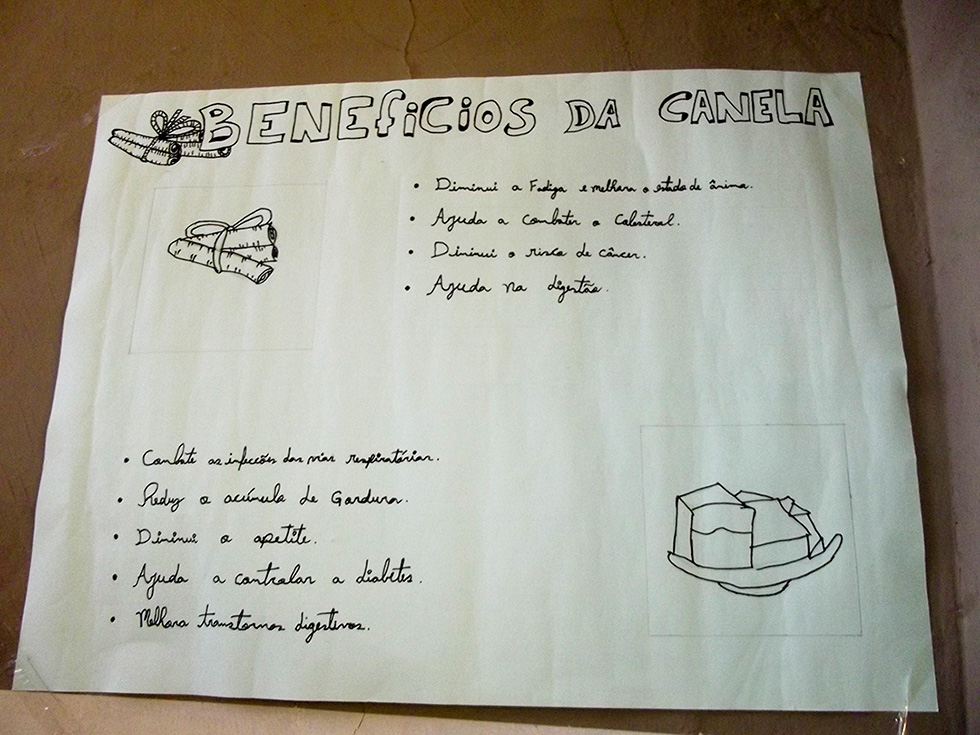 BENEFiCiOS DA CANELA
• Diminui a Fadiga e melhora o estado de ânimo.
• Ajuda a combater o Colesterol.
• Diminui o risco de câncer.
• Ajuda na digestão.
• Combate as infecções das vias respiratórias.
• Reduz o acúmulo de Gordura.
• Diminui o apetite.
• Ajuda a controlar a diabetes.
• Melhora transtornos digestivos.